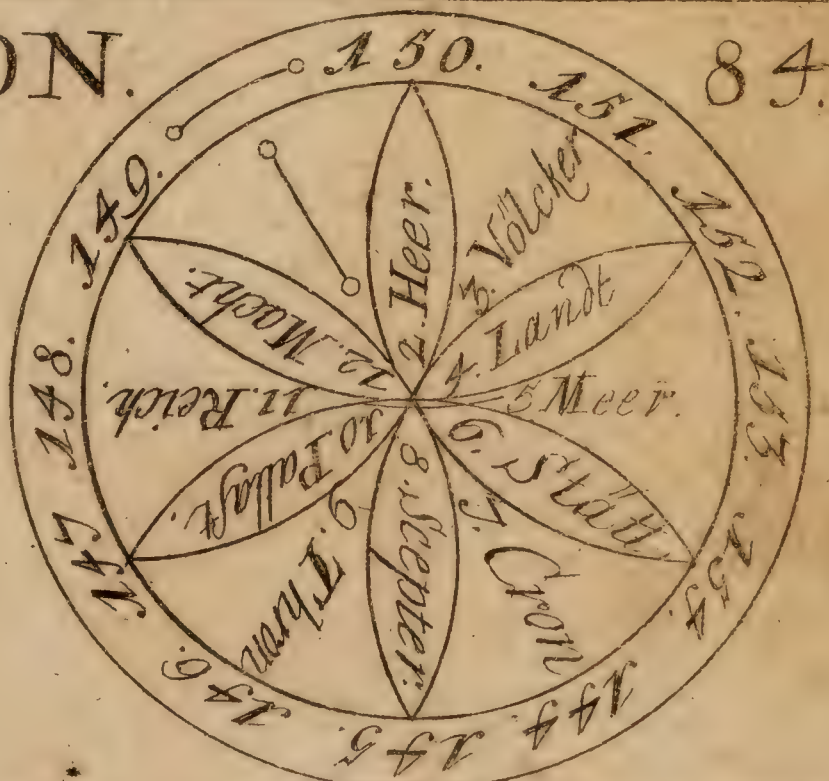 ON.
84.
150.
151.
152.
153.
154.
144.
145.
146.
147
148.
149.
2. Heer.
3. Völcker
4. Landt
5 Meer.
6. Stätt
7. Cron
8. Scepter.
9. Thron
10 Pallast.
11. Reich.
12. Macht.